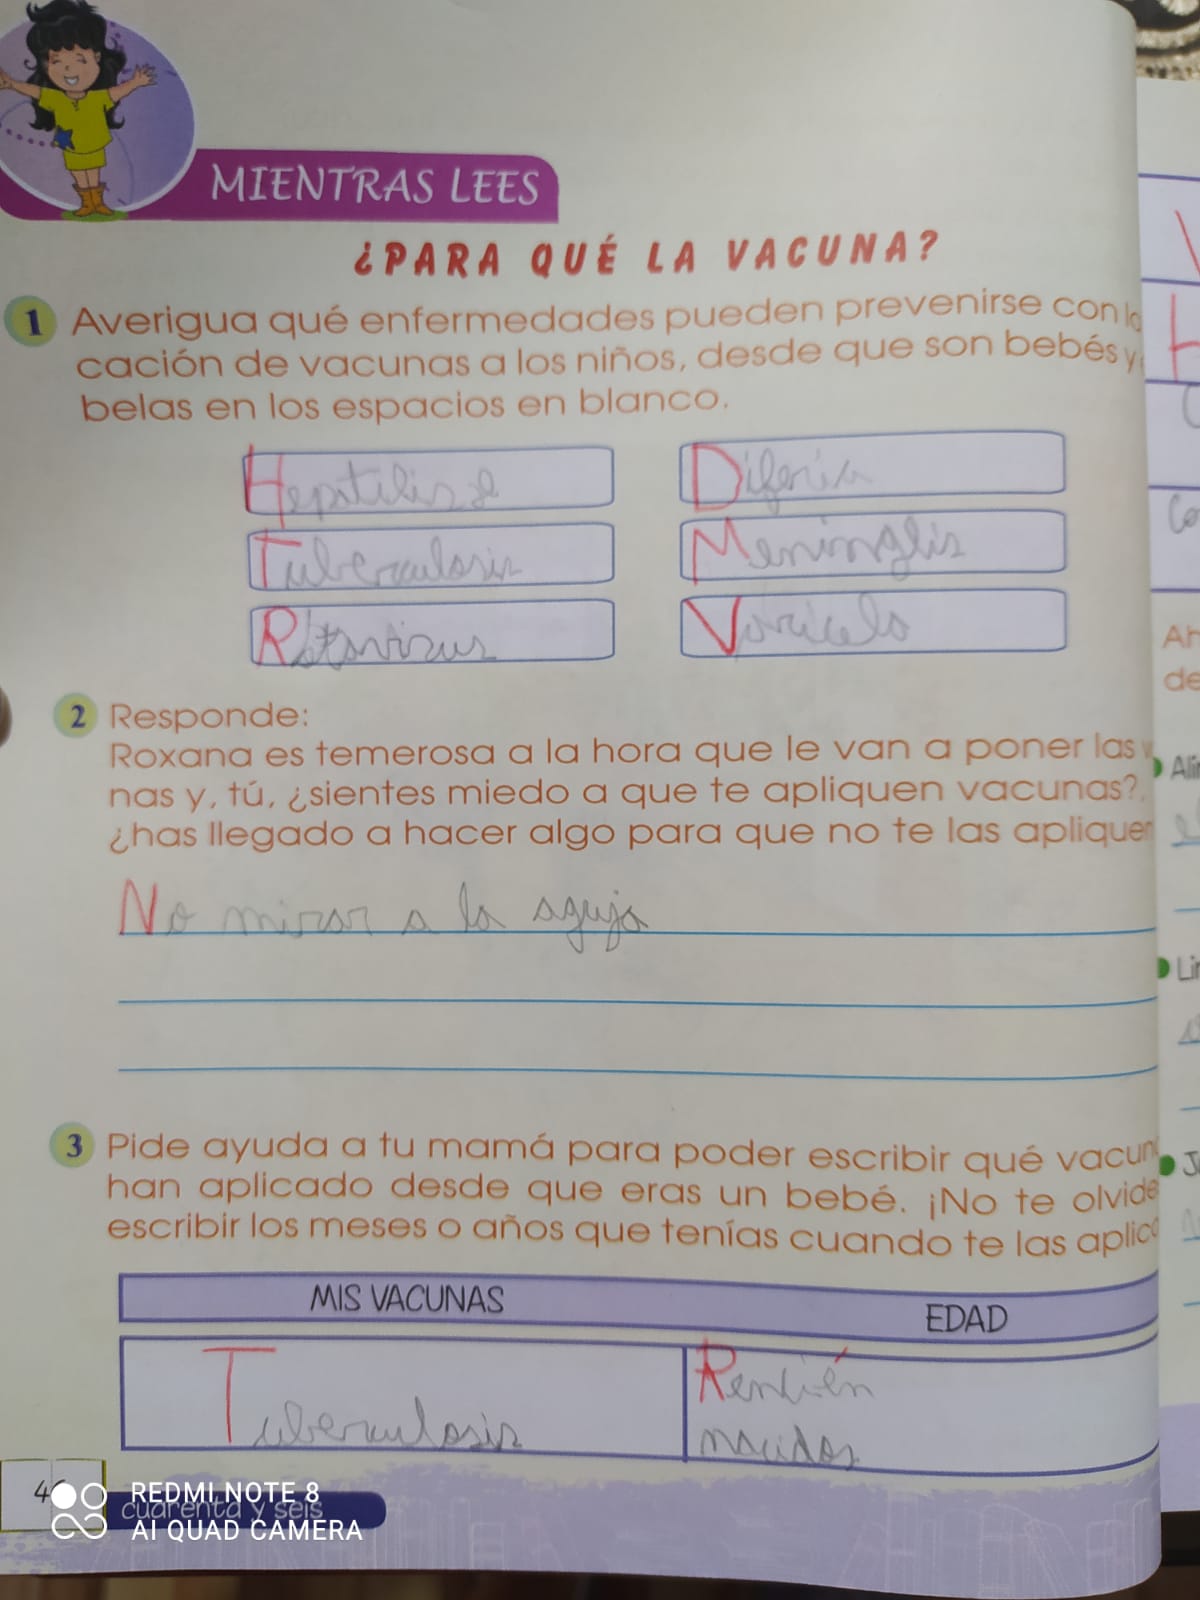 MIENTRAS LEES
¿PARA QUÉ LA VACUNA?
1 Averigua qué enfermedades pueden prevenirse con
cación de vacunas a los niños, desde que son bebés y
belas en los espacios en blanco.
Hepatilis Diferia
Tuberculosis Meninglis
Rotavirus Varicela
2 Responde:
Roxana es temerosa a la hora que le van a poner las
nas y, tú, ¿sientes miedo a que te apliquen vacunas?,
¿has llegado a hacer algo para que no te las apliquen
No mirar a la aguja
3 Pide ayuda a tu mamá para poder escribir qué vacun
han aplicado desde que eras un bebé. ¡No te olvide
escribir los meses o años que tenías cuando te las aplica
MIS VACUNAS EDAD
Tuberculosis
nacidos
cuarenta y seis
REDMI NOTE 8
AI QUAD CAMERA
Ali
Li